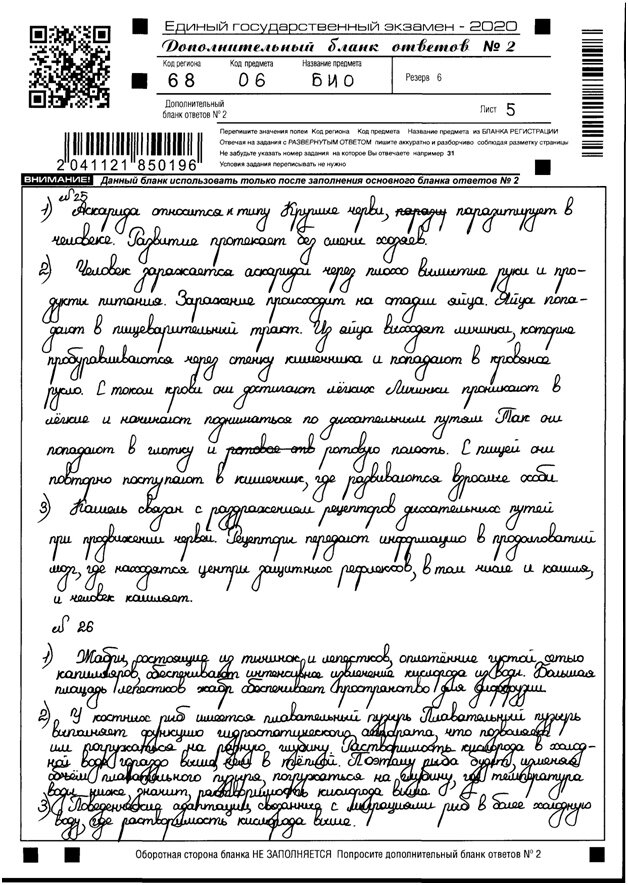 Единый государственный экзамен - 2020
Дополнительный бланк ответов № 2
Код региона Код предмета Название предмета
Резерв 6
68 06 БИО
Дополнительный
бланк ответов № 2
Лист 5
Перепишите значения полей Код региона Код предмета Название предмета из БЛАНКА РЕГИСТРАЦИИ
Отвечая на задания с РАЗВЕРНУТЫМ ОТВЕТОМ пишите аккуратно и разборчиво соблюдая разметку страницы
Не забудьте указать номер задания на которое Вы отвечаете например 31
Условия задания переписывать не нужно
2 041121 850196
ВНИМАНИЕ! Данный бланк использовать только после заполнения основного бланка ответов № 2
№25
1) Аскарида относится к типу Круглые черви, паразитирует в
человеке. Развитие протекает без смены хозяев.
2) Человек заражается аскаридой через плохо вымытые руки и про-
дукты питания. Заражение происходит на стадии яйца. Яйца попа-
дают в пищеварительный тракт. Из яйца выходят личинки, которые
пробуравливаются через стенку кишечника и попадают в кровяное
русло. С током крови они достигают лёгких Личинки проникают в
лёгкие и начинают подниматься по дыхательным путям Так они
попадают в глотку и ротовую полость. С пищей они
повторно поступают в кишечник, где развиваются взрослые особи.
3) Кашель связан с раздражением рецепторов дыхательных путей
при продвижении червей. Рецепторы передают информацию в продолговатый
мозг, где находятся центры защитных рефлексов, в том числе и кашля,
и человек кашляет.
№ 26
1) Жабры, состоящие из тычинок и лепестков, оплетённые густой сетью
капилляров, обеспечивают интенсивное извлечение кислорода из воды. Большая
площадь лепестков жабр обеспечивает пространство для диффузии
2) У костных рыб имеется плавательный пузырь Плавательный пузырь
выполняет функцию гидростатического аппарата, что позволяет
им погружаться на разную глубину. Растворимость кислорода в холод-
ной воде гораздо выше, чем в тёплой. Поэтому рыба будет, изменяя
объём плавательного пузыря, погружаться на глубину, где температура
воды ниже, значит, растворимость кислорода выше
3) Поведенческие адаптации, связанные с миграциями рыб в более холодную
воду, где растворимость кислорода выше.
Оборотная сторона бланка НЕ ЗАПОЛНЯЕТСЯ Попросите дополнительный бланк ответов № 2